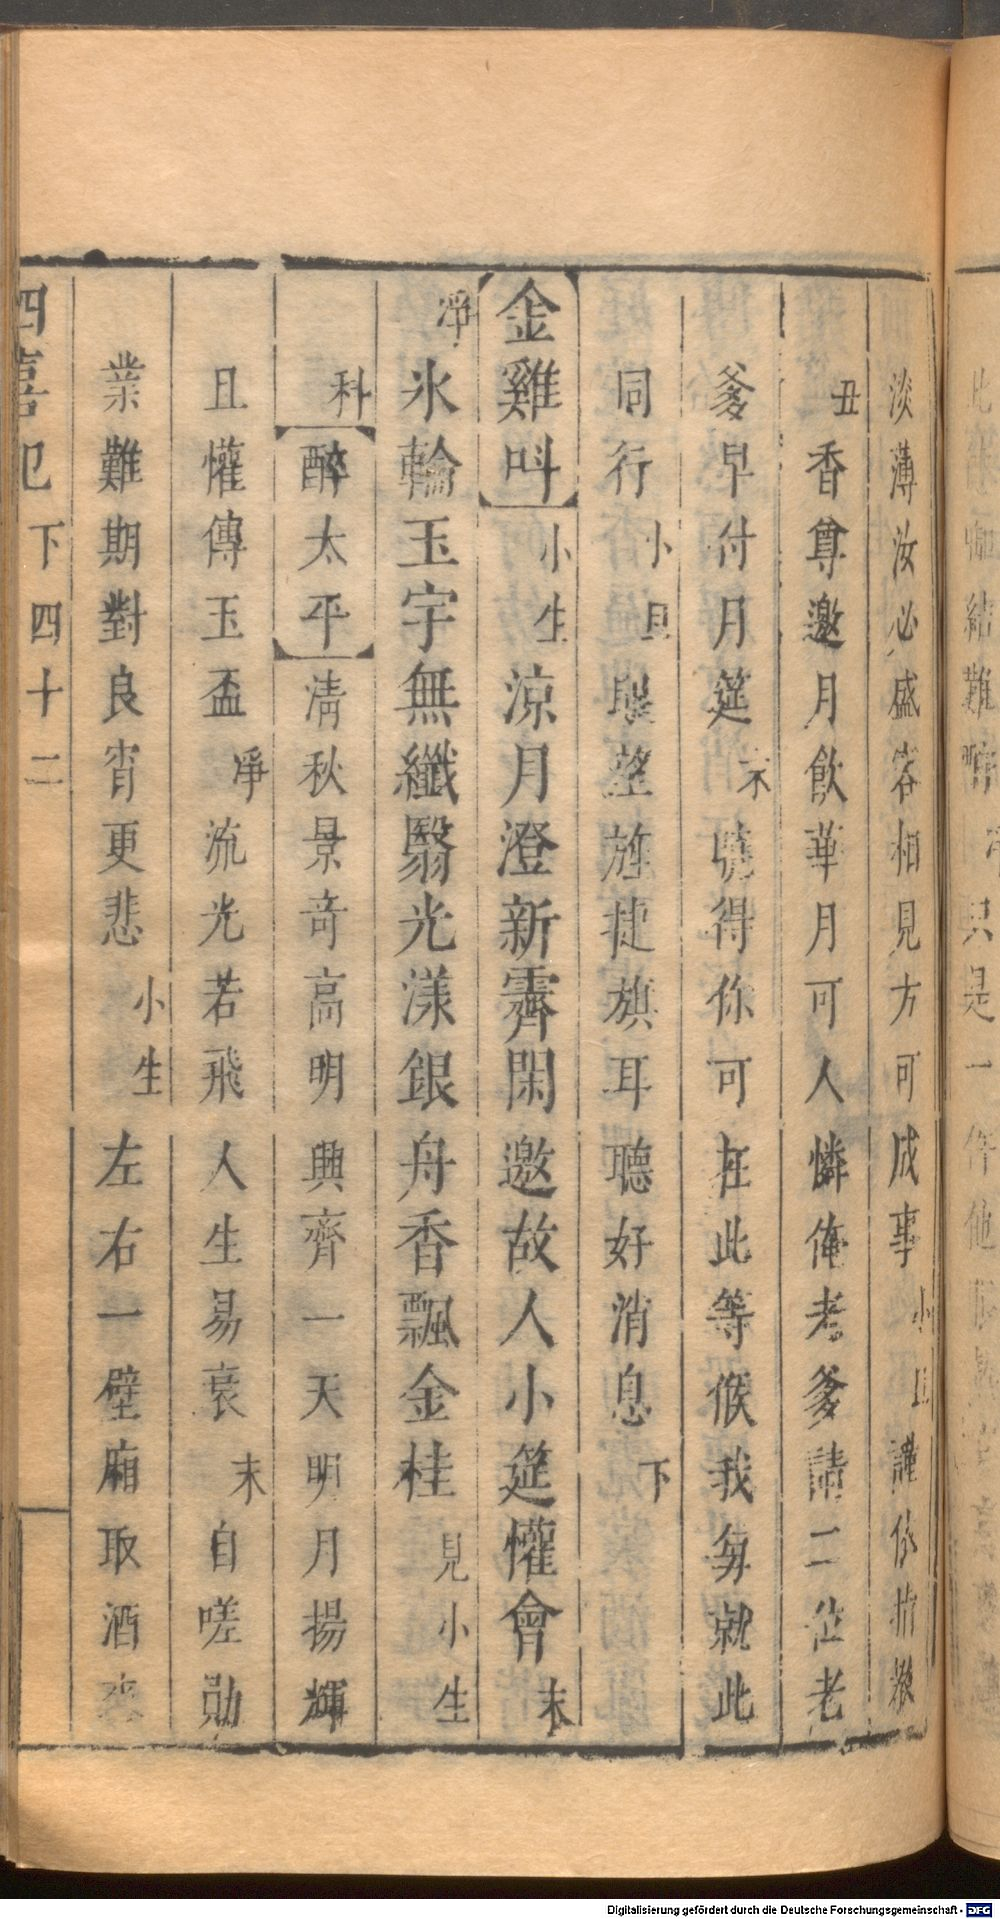 淡薄汝必盛容相見方可成事小旦謹依指撥
丑香尊邀月飲華月可人憐俺老爹請二位老
爹早付月筵末曉得你可在此等候我每就此
同行小旦眼望旌捷旗耳聽好消息下
金雞呌小生涼月澄新霽閑邀故人小筵懽會末
淨氷輪玉宇無纖翳光漾銀舟香飄金桂見小生
科醉太平淸秋景竒高明興齊一天明月揚輝
且懽傳玉盃淨流光若飛人生易衰末自嗟勛
業難期對良宵更悲小生左右一壁廂取酒來
四喜記下四十二
Digitalisierung gefördert durch die Deutsche Forschungsgemeinschaft - DFG